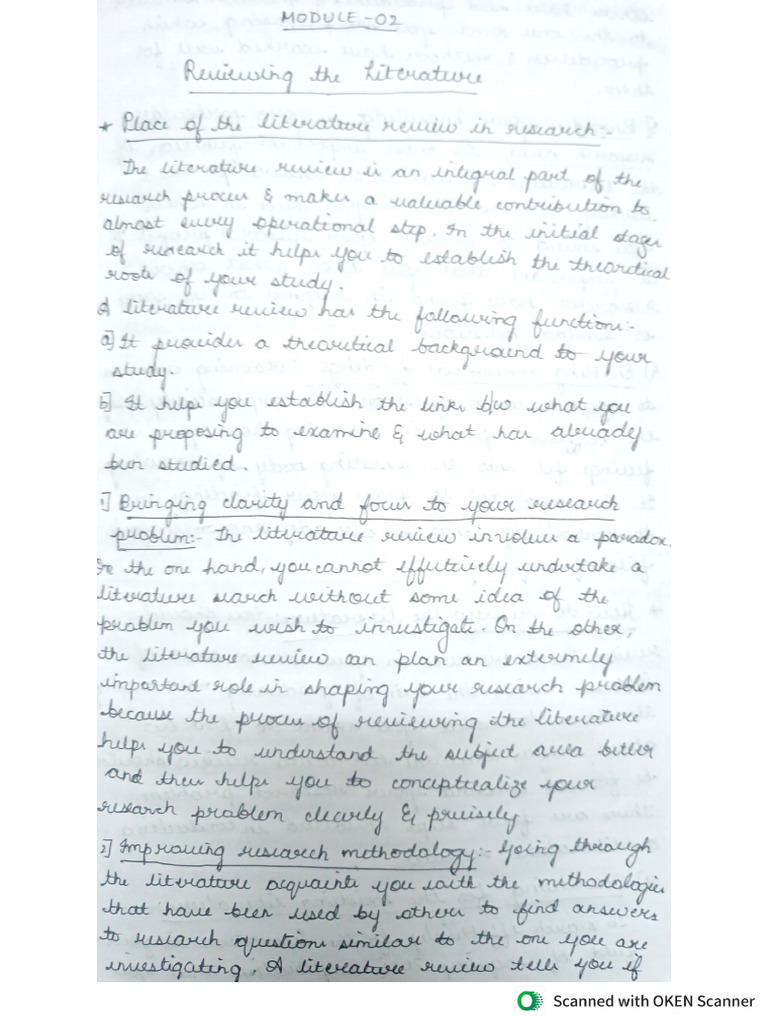 MODULE-02
Reviewing the Literature
* Place of the literature review in research:-
The literature review is an integral part of the
research process & makes a valuable contribution to
almost every operational step. In the initial stages
of research it helps you to establish the theoretical
roots of your study.
A literature review has the following functions:-
a] It provides a theoretical background to your
study.
b] It helps you establish the links b/w what you
are proposing to examine & what has already
been studied.
1] Bringing clarity and focus to your research
problem:- The literature review involves a paradox.
On the one hand, you cannot effectively undertake a
literature search without some idea of the
problem you wish to investigate. On the other,
the literature review can plan an extermely
important role in shaping your research problem
because the process of reviewing the literature
helps you to understand the subject area better
and then helps you to conceptualize your
research problem clearly & precisely
2] Improving research methodology:- Going through
the literature acquaints you with the methodologies
that have been used by others to find answers
to research questions similar to the one you are
investigating. A literature review tells you if
Scanned with OKEN Scanner